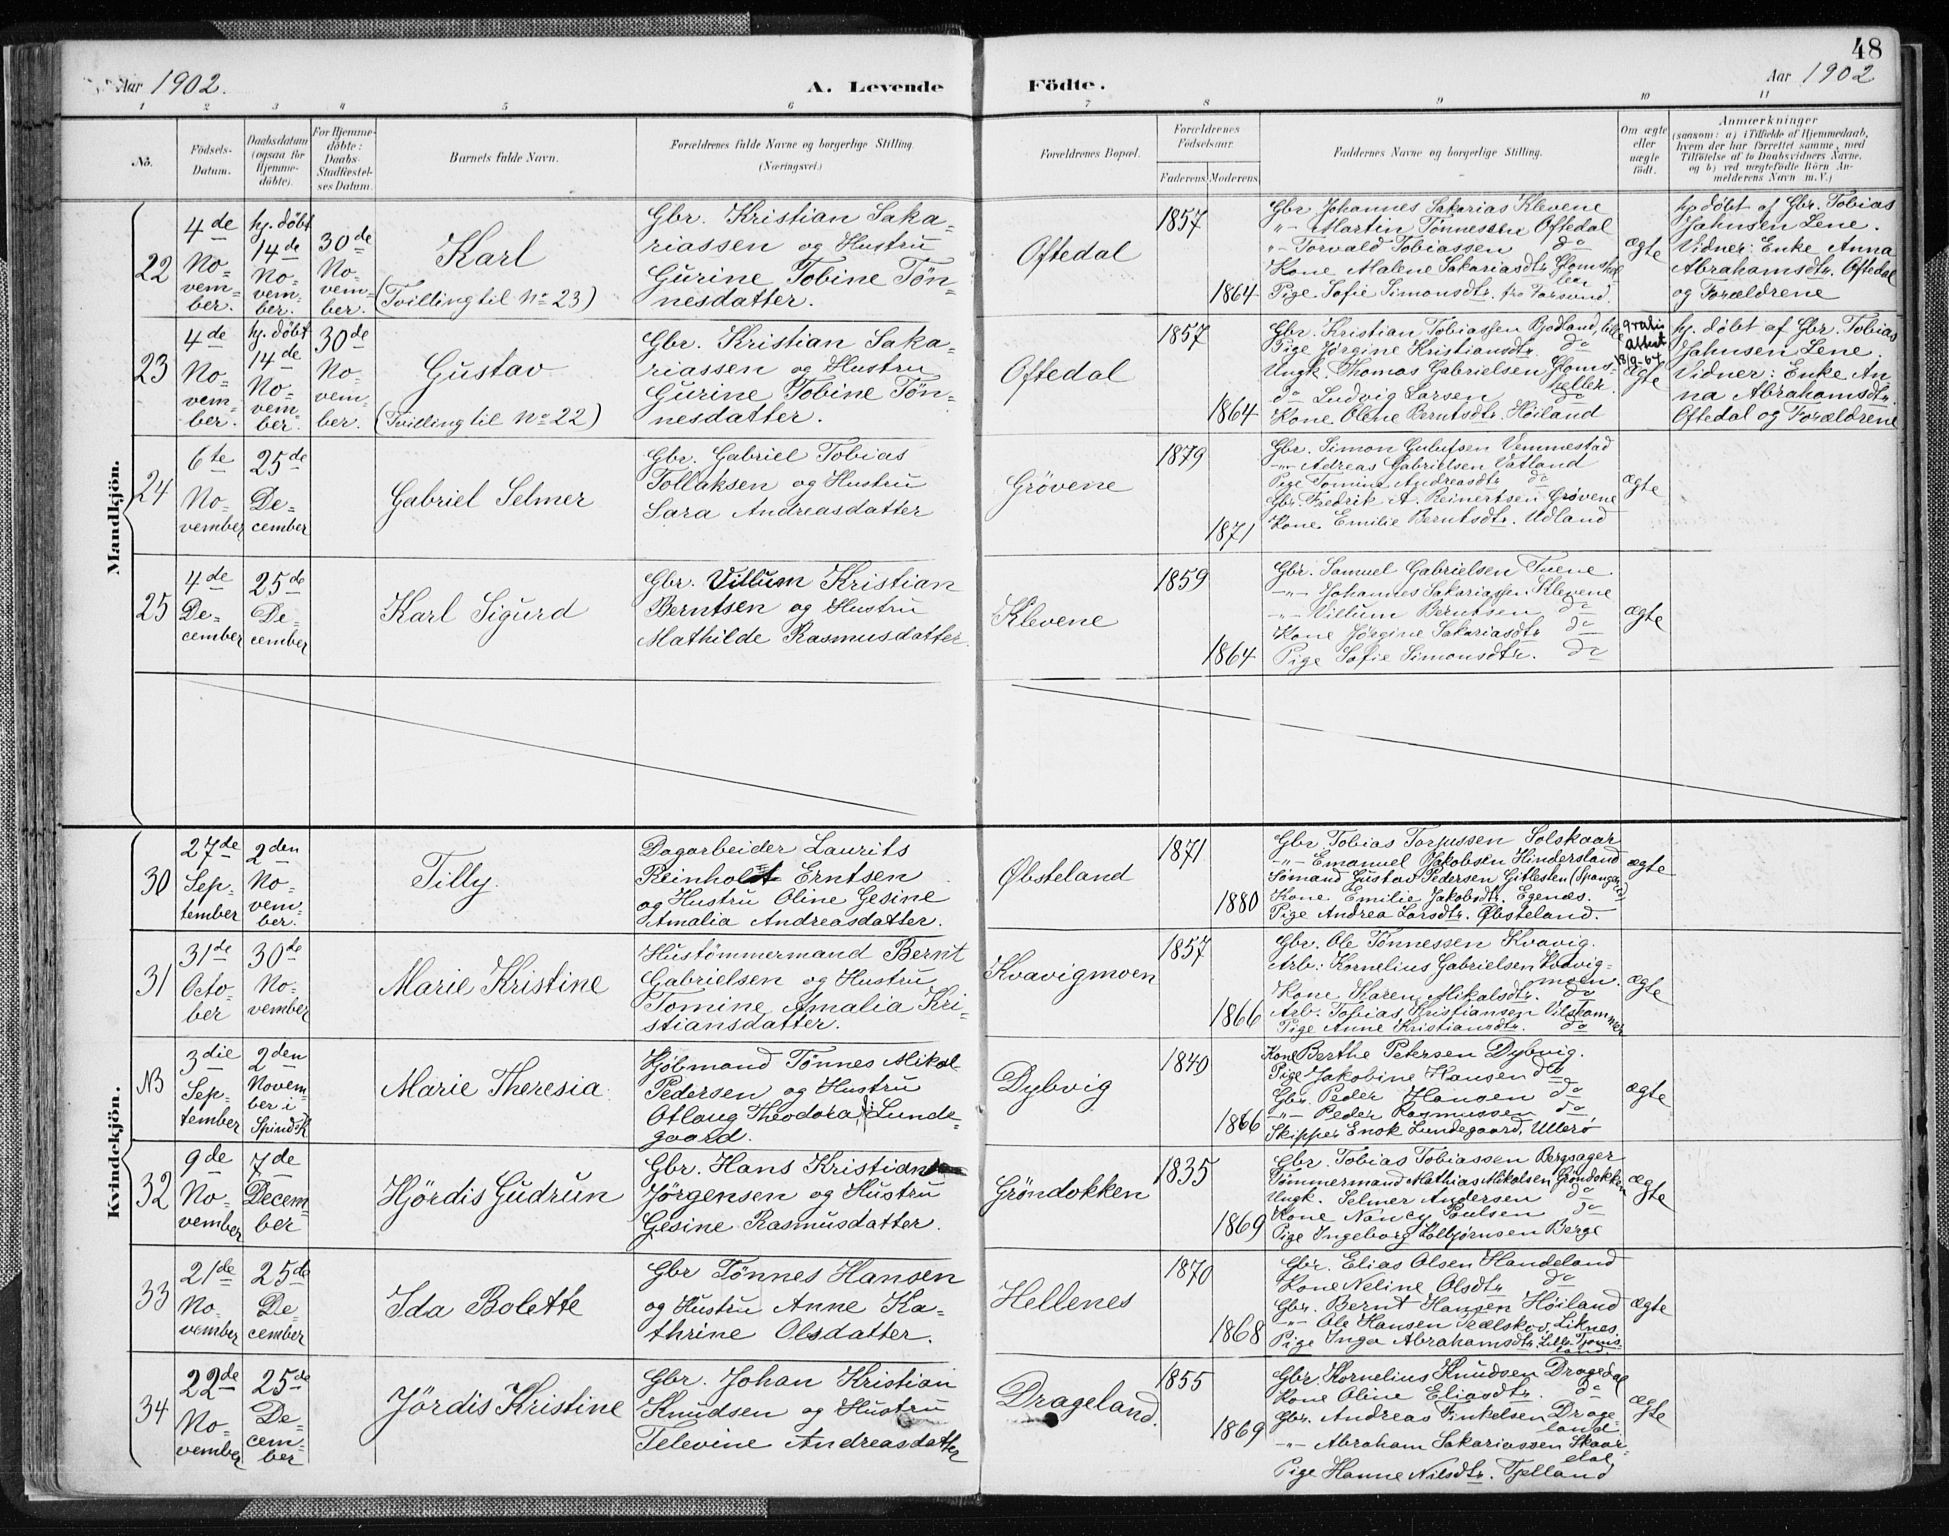 48
Aar 1902.
A. Levende
Födte.
Aar 1902
1 2 3 4 5 6 7 8 9 10 11
No.
Födsels-
Datum.
Daabsdatum
(ogsaa for
Hjemme-
döbte).
For Hjemme-
döbte:
Daabs-
Stadfæstel-
ses Datum.
Barnets fulde Navn.
Forældrenes fulde Navne og borgerlige Stilling.
(Næringsvei.)
Forældrenes Bopæl.
Forældrenes
Födselsaar.
Faderens.
Moderens.
Faddernes Navne og borgerlige Stilling.
Om ægte
eller
uægte
födt.
Anmærkninger
(saasom: a) i Tilfælde af Hjemmedaab,
hvem der har forrettet samme, med
Tilföielse af to Daabsvidners Navne,
og b) ved uægtefödte Börn An-
melderens Navn m. V.)
Mandkjön.
22
4de
No-
vem-
ber.
hj. døbt
14de
No-
vem-
ber.
30de
No-
vem-
ber.
Karl
(Tvilling til No 23)
Gbr. Kristian Saka-
riassen og Hustru
Gurine Tobine Tøn-
nesdatter.
Oftedal
1857
1864
Gbr. Johannes Sakarias Klevene
-"- Martin Tønnessen Oftedal
-"- Torvald Tobiassen do
Kone Malene Sakariasdtr.
Pige Sofie Simonsdtr. fra
ægte
hj. døbt af Gbr. Tobias
Jahnsen Lene.
Vidner: Enke Anna
Abrahamsdtr. Oftedal
og Forældrene
23
4de
No-
vem-
ber.
hj. døbt
14de
No-
vem-
ber.
30de
No-
vem-
ber.
Gustav
(Tvilling til No 22)
Gbr. Kristian Saka-
riassen og Hustru
Gurine Tobine Tøn-
nesdatter.
Oftedal
1857
1864
Gbr. Kristian Tobiassen Bjodland, lille
Pige Jørgine Kristiansdtr. do
Ungk. Thomas Gabrielsen Gloms-
heller.
do Ludvig Larsen do
Kone Olene Berntsdtr. Høiland
gratis
attest
13/9-64
ægte
hj. døbt af Gbr. Tobias
Jahnsen Lene.
Vidner: Enke An-
na Abrahamsdtr.
Oftedal og Forældrene
24
6te
No-
vember
25de
De-
cember
Gabriel Selmer
Gbr. Gabriel Tobias
Tollaksen og Hustru
Sara Andreasdatter
Grövene
1879
1871
Gbr. Simon Gulufsen Vemmestad
-"- Adreas Gabrielsen Vatland
Pige Tomine Andreasdtr do
Gbr. Fredrik A. Reinertsen Grövene
Kone Emilie Berntsdtr. Udland
ægte
25
4de
De-
cember
25de
De-
cember
Karl Sigurd
Gbr. Villum Kristian
Berntsen og Hustru
Mathilde Rasmusdatter.
Klevene
1859
1864
Gbr. Samuel Gabrielsen Tuene.
-"- Johannes Sakariassen Klevene
-"- Villum Berntsen do
Kone Jørgine Sakariasdtr do
Pige Sofie Simonsdtr. do
ægte
Kvindekjön.
30
27de
Sep-
tember
2den
No-
vem-
ber.
Tilly.
Dagarbeider Laurits
Reinholdt Erntsen
og Hustru Oline Gesine
Amalia Andreasdatter.
Øbsteland
1871
1880
Gbr Tobias Torjussen Solskaar
-"- Emanuel Jakobsen Hindersland
Sömand Gustav Pedersen Gitlesten
Kone Emilie Jakobsdtr. Egenæs.
Pige Andrea Larsdtr. Øbsteland.
ægte
31
31de
Octo-
ber
30de
No-
vember
Marie Kristine
Hustømmermand Bernt
Gabrielsen og Hustru
Tomine Amalia Kri-
stiansdatter.
Kvavigmoen
1857
1866
Gbr. Ole Tønnessen Kvavig.
Arb: Kornelius Gabrielsen Kvavig-
moen.
Kone Karen Mikalsdtr. do
Arb. Tobias Kristiansen Vilskammer
Pige Anne Kristiansdtr. do
ægte
NB
3die
Sep-
tember
2den
Novem-
ber i
Spind Sk
Marie Theresia.
Kjöbmand Tønnes Mikal
Pedersen og Hustru
Otlaug Theodora, f. Lunde-
gaard.
Dybvig
1840
1866
Kone Berthe Petersen Dybvig.
Pige Jakobine Hansen do
Gbr. Peder Hansen do
-"- Peder Rasmussen do
Skipper Enok Lundegaard, Ullerø
ægte
32
9de
No-
vember
7de
Decem-
ber
Hjördis Gudrun
Gbr. Hans Kristian
Jörgensen og Hustru
Gesine Rasmusdatter.
Gröndokken
1835
1869
Gbr. Tobias Tobiassen Bergsager
Tömmermand Mathias Mikalsen Gröndokken
Ungk. Selmer Andersen do
Kone Nancy Poulsen do
Pige Ingeborg Kolbjørnsen Berge
ægte
33
21de
No-
vember
25de
De-
cember
Ida Bolette
Gbr Tønnes Hansen
og Hustru Anne Ka-
thrine Olsdatter.
Hellenes
1870
1868
Gbr. Elias Olsen Handeland
Kone Neline Olsdtr do
Gbr. Bernt Hansen Høiland
-"- Ole Hansen Liknes
Pige Inga Abrahamsdtr. Lille
ægte
34
22de
No-
vember
25de
De-
cem-
ber
Jördis Kristine
Gbr. Johan Kristian
Knudsen og Hustru
Televine Andreasdatter
Drageland.
1855
1869
Gbr. Kornelius Knudsen Dragedal
Kone Oline Eliasdtr. do
Gbr. Andreas Finkelsen Drage-
land.
-"- Abraham Sakariassen Skaar-
dal
Pige Hanne Nilsdtr. Tjelland
ægte